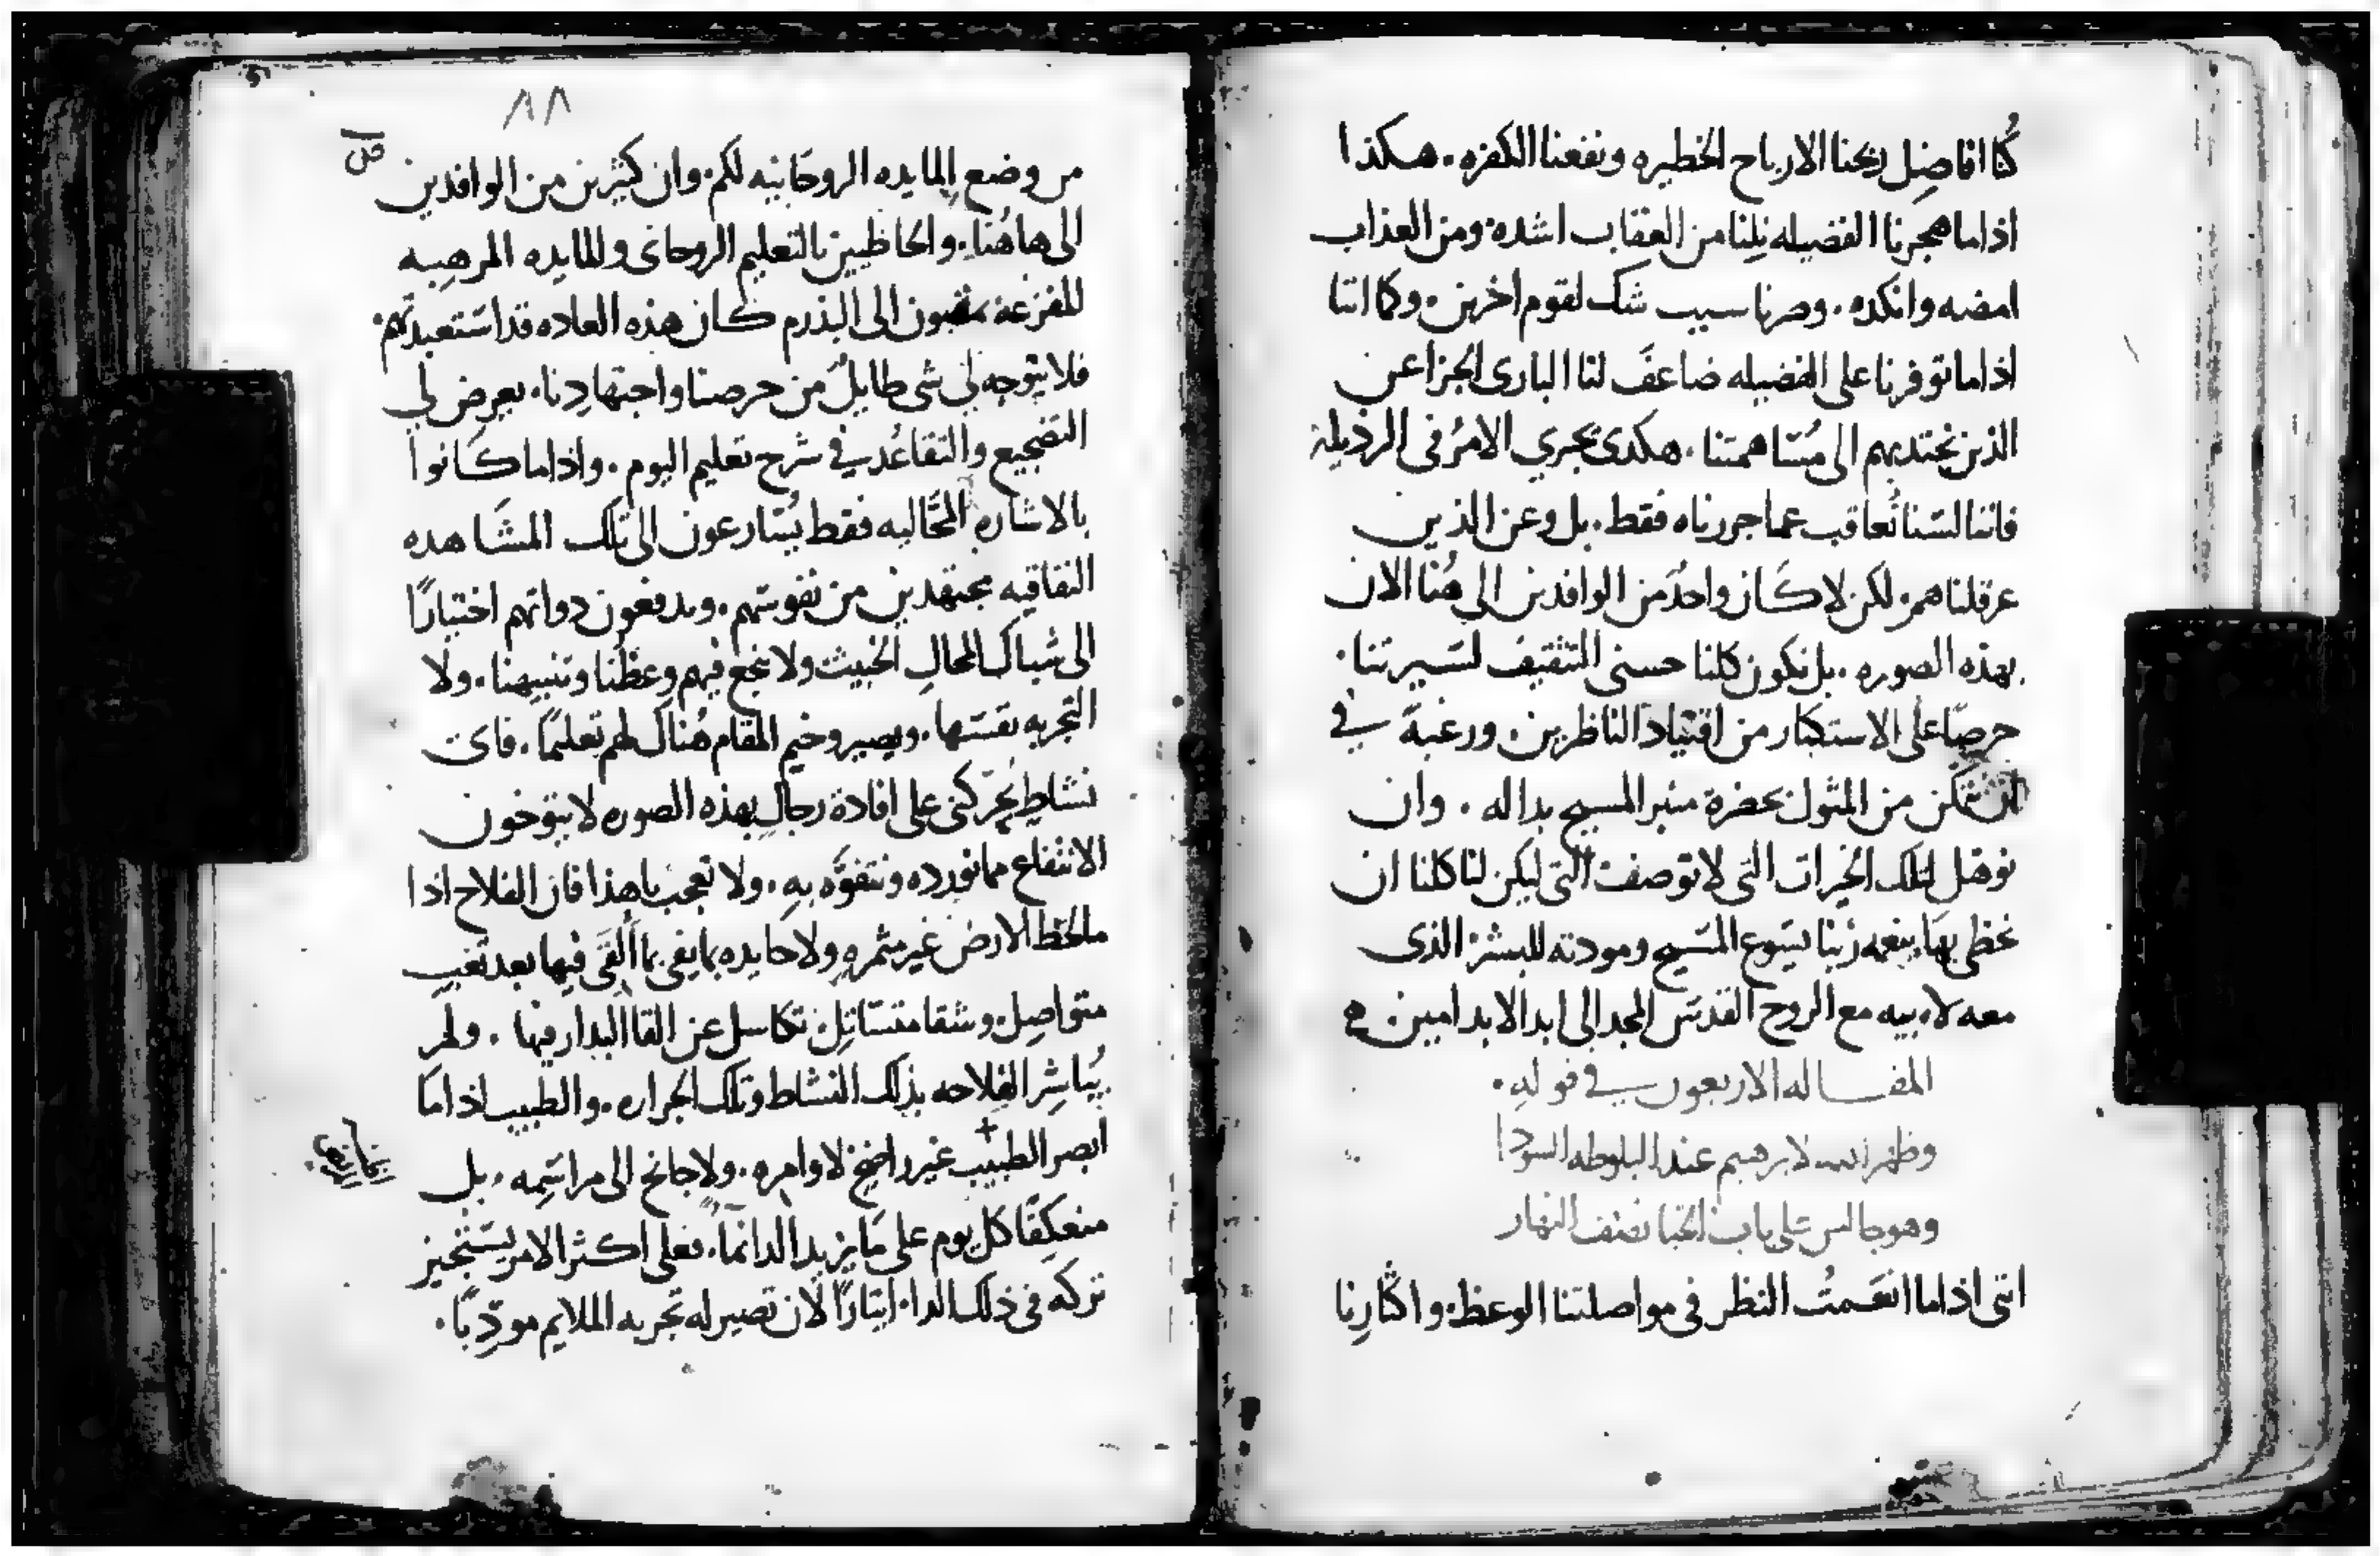 كُنا افاضِل ربحنا الارباح الخطيره ونفعنا الكفره. هكذا
اذاما هجرنا الفضيله نِلِنا من العقاب اشده ومن العذاب
امضه وانكده. وصرنا سبب شك لقوم اخرين. وكما اننا
اذاما توفرنا على الفضيله ضاعفَ لنا البارى الجزا عن
الذين نجتديهم الى مُسَاهمتنا. هكدى يجري الامرُ فى الرذيلة
فاننا لسَنا نُعاقب عما جررناه فقط. بل وعن الذين
عرقلناهم. لكن لا كَان واحدُ من الوافدين الى هُنا الان
بهذه الصوره. بل نكون كلنا حسنى التثقيف لسَيرتنا.
حرصًا على الاستكثار من اقتياد الناظرين. ورغبة في
ان نتمكن من المثول بحضرة منبر المسيح بداله. وان
نوهل لتلك الخيرات التى لا توصف التى ليكن لنا كلنا ان
نحظى بهَا بنعمه ربنا يسَوع المسَيح ومودته للبشر الذى
معه لابيه مع الروح القدسَ المجد الى ابد الابد امين.
المقاله الاربعون في قوله.
وظهر الله لابرهيم عند البلوطه السودا
وهو جالس على باب الخبا نصف النهار
اننى اذاما انعَمتُ النظر فى مواصلتنا الوعظ. واكثارنا
٨٨
من وضع المايده الروحَانيه لكم. وان كثيرين من الوافدين
الى هاهُنا. والحاظيين بالتعليم الروحانى والمايده المرهبه
المفزعة الى البذرم كان هذه العاده قد استَعبدتهم.
فلا يتوجه لي شى طايلٌ من حرصنا واجتهادِنا. يعرض لي
التضجيع والتقاعُد في شرح تعليم اليوم. واذاما كَانوا
بالاشاره المحَّاليه فقط يُسَارعون الى تلك المشَاهده
النفاقيه مجتهدين من نفوسَهم. ويدفعون دواتهم اختيارًا
الى شباك المحالِ الخبيث ولا نجع فيهم وعظُنا وتنبيهنا. ولا
التجربه نفسَها. ويصير وخيم المقام هُناك لهم تعليمًا. فاى
نشاطٍ يُحرّكنى على افادة رجالٍ بهذه الصوره لا يتوخون
الانتفاع مما نورده ونتفوَّه بهِ. ولا تعجب يا هذا فان الفلاح اذا
مالحظ الارض غير مثمرهٍ ولا حايده بما يفى بما اُلقَى فيها بعد تعَبِ
متواصِل. وشقا متسَاتل. تكاسل عن القا البدار فيها. ولم
يُباشِر الفلاحه بذلك النشاط وتلك الحراره. والطبيب اذاما
ابصر الطبيب غير راضخ لاوامره. ولا جانح الى مراسَِمه. بل
منعكفًا كل يوم على مَا يزيد الدا نما. فعلى اكثر الامر يسَتجيز
تركه فى ذلك الدا. ايثارًا لان تصير له تجربه الملايم مودِّبًا.